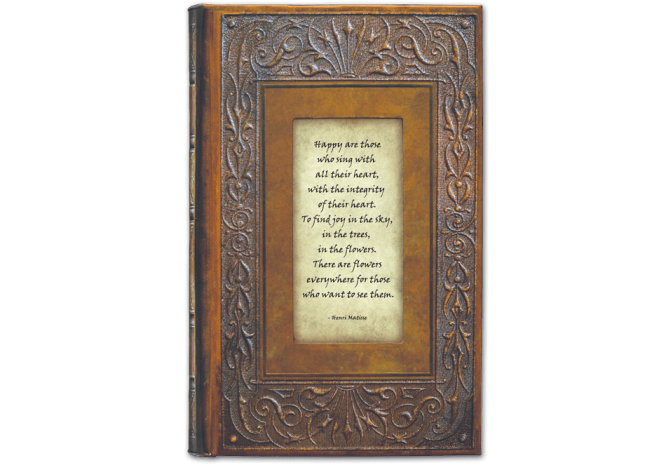 Happy are those
who sing with
all their heart,
with the integrity
of their heart.
To find joy in the sky,
in the trees,
in the flowers.
There are flowers
everywhere for those
who want to see them.
- Henri Matisse